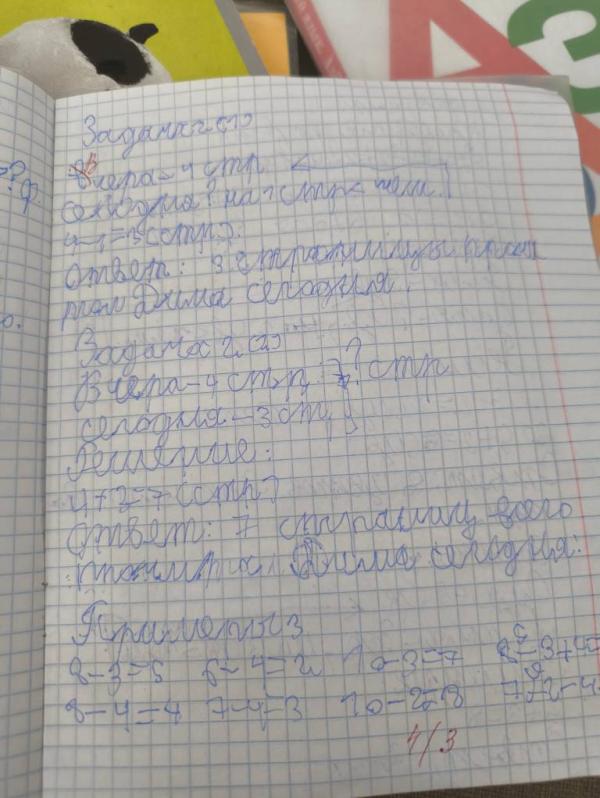 Задача 2 (1)
Вчера - 4 стр
сегодня ? на 1 стр < чем
4-1=3 (стр).
ответ: 3 страницы
Дима сегодня.
Задача 2. (2)
Вчера - 4 стр, ? стр
сегодня - 3 ст,
Решение:
4+3=7 (стр)
ответ: 7 страниц всего
Дима сегодня.
Примеры 3
8-3=5 6-4=2 10-3=7 8-3+4=
8-4=4 7-4=3 10-2=8 7+2-4
4/3